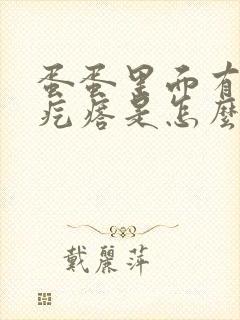 蛋蛋里面有
疙瘩是怎麼
戴麗萍